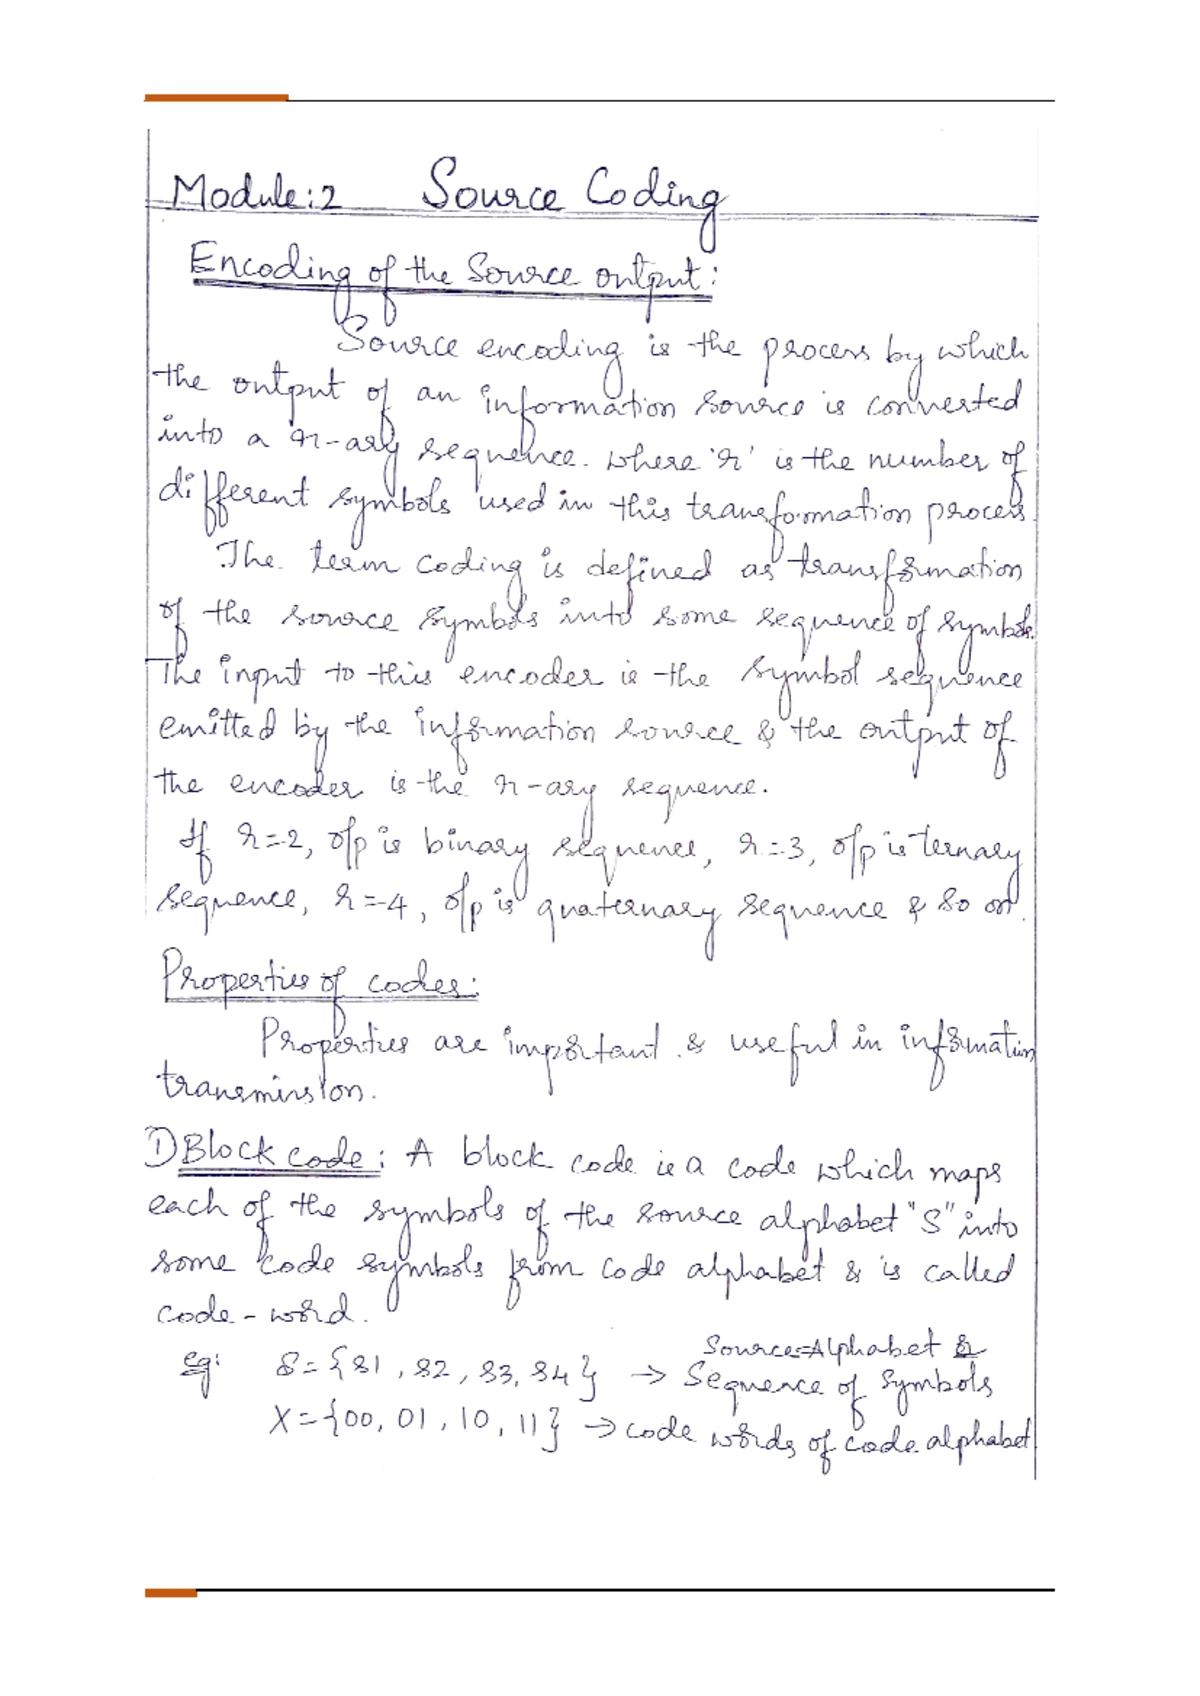 Module:2 Source Coding
Encoding of the Source output:
Source encoding is the process by which
the output of an information source is converted
into a r-ary sequence. where 'r' is the number of
different symbols used in this transformation process.
The term coding is defined as transformation
of the source symbols into some sequence of symbols.
The input to this encoder is the symbol sequence
emitted by the information source & the output of
the encoder is the r-ary sequence.
If r=2, o/p is binary sequence, r=3, o/p is ternary
sequence, r=4, o/p is quaternary sequence & so on.
Properties of codes:
Properties are important & useful in information
transmission.
1) Block code: A block code is a code which maps
each of the symbols of the source alphabet "S" into
some code symbols from code alphabet & is called
code-word.
eg: S={S1, S2, S3, S4} → Source=Alphabet &
Sequence of symbols
X={00, 01, 10, 11} → code words of code alphabet